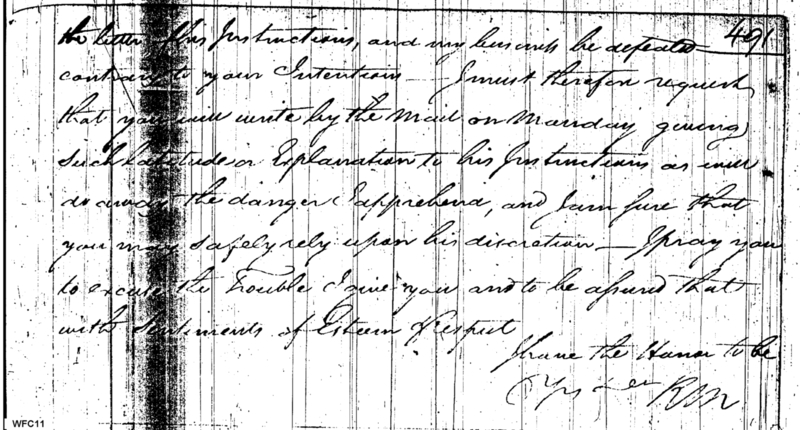 491
the letter of his Instructions, and my business be defeated
contrary to your Intentions — I must therefore request
that you will write by the Mail on Monday giving
such Latitude or Explanation to his Instructions as will
do away the danger I apprehend, and I am sure that
you may safely rely upon his discretion — I pray you
to excuse the Trouble I give you and to be assured that
with Sentiments of Esteem & Respect
I have the Honor to be
Yrs &ca RM
WFC11